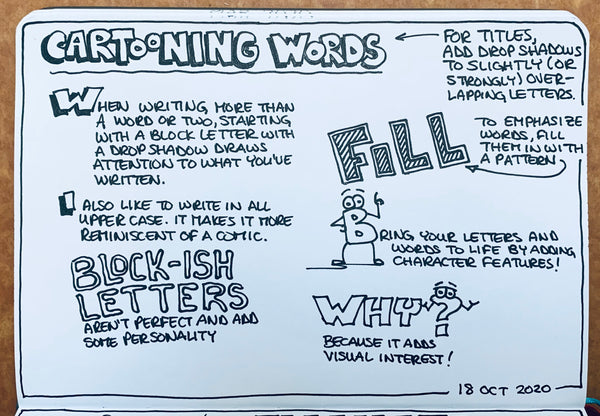 CARTOONING WORDS
FOR TITLES,
ADD DROP SHADOWS
TO SLIGHTLY (OR
STRONGLY) OVER-
LAPPING LETTERS.
WHEN WRITING MORE THAN
A WORD OR TWO, STARTING
WITH A BLOCK LETTER WITH
A DROP SHADOW DRAWS
ATTENTION TO WHAT YOU'VE
WRITTEN.
I ALSO LIKE TO WRITE IN ALL
UPPER CASE. IT MAKES IT MORE
REMINISCENT OF A COMIC.
BLOCK-ISH
LETTERS
AREN'T PERFECT AND ADD
SOME PERSONALITY
FILL
TO EMPHASIZE
WORDS, FILL
THEM IN WITH
A PATTERN
BRING YOUR LETTERS AND
WORDS TO LIFE BY ADDING
CHARACTER FEATURES!
WHY?
BECAUSE IT ADDS
VISUAL INTEREST!
18 OCT 2020